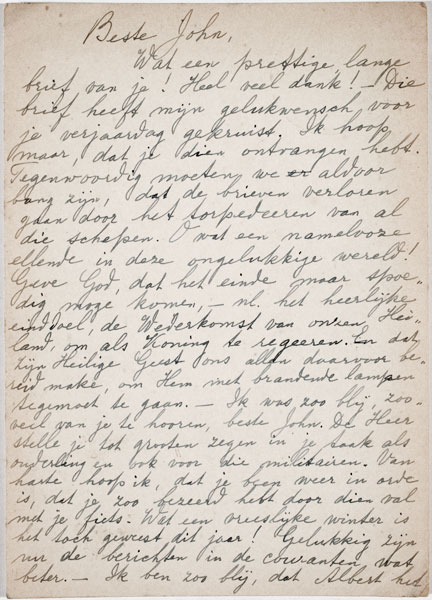 Beste John,
Wat een prettige, lange
brief van je! Heel veel dank! – Die
brief heeft mijn gelukwensch voor
je verjaardag gekruist. Ik hoop
maar, dat je dien ontvangen hebt.
Tegenwoordig moeten we er altoos
bang zijn, dat de brieven verloren
gaan door het torpedeeren van al
die schepen. O wat een namelooze
ellende in deze ongelukkige wereld!
Geve God, dat het einde maar spoe-
dig moge komen, – nl. het heerlijke
einddoel, de Wederkomst van onzen Hei-
land, om als Koning te regeeren. En dat
Zijn Heilige Geest ons allen daarvoor be-
reid make, om Hem met brandende lampen
tegemoet te gaan. – Ik was zoo blij, zoo-
veel van je te hooren, beste John. De Heer
stelle je tot grooten zegen in je taak als
ouderling en ook voor die militairen. Van
harte hoop ik, dat je been weer in orde
is, dat je zoo bezeerd hebt door dien val
met je fiets. Wat een vreeslijke winter is
het toch geweest dit jaar! Gelukkig zijn
nu de berichten in de couranten wat
beter. – Ik ben zoo blij, dat Albert het